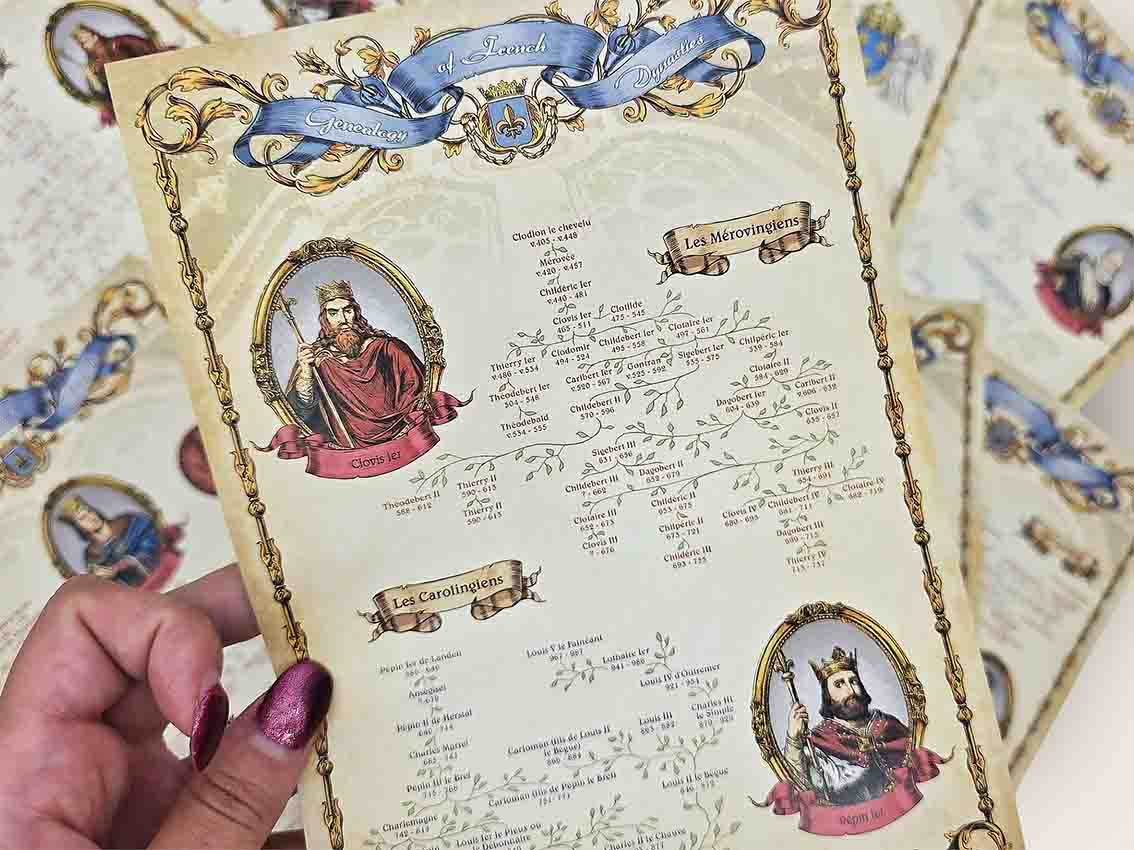 Genealogy
of French
Dynasties
Les Mérovingiens
Clodion le chevelu
v.405 - v.448
Mérovée
v.420 - v.457
Childéric Ier
v.440 - 481
Clovis Ier
465 - 511
Clotilde
475 - 545
Thierry Ier
v.486 - v.534
Clodomir
494 - 524
Childebert Ier
495 - 558
Clotaire Ier
497 - 561
Théodebert Ier
504 - 548
Caribert Ier
v.520 - 567
Gontran
v.525 - 592
Sigebert Ier
535 - 575
Chilpéric Ier
539 - 584
Théodebald
v.534 - 555
Childebert II
570 - 596
Clotaire II
584 - 629
Dagobert Ier
604 - 639
Caribert II
v.606 - 632
Clovis II
635 - 657
Clovis Ier
Théodebert II
586 - 612
Thierry II
590 - 613
Thierry II
590 - 613
Sigebert III
631 - 656
Childebert III
? - 662
Dagobert II
652 - 679
Thierry III
654 - 691
Clotaire III
652 - 673
Childéric II
653 - 675
Clovis IV
680 - 695
Childebert IV
Clotaire IV
682 - 719
Clovis III
? - 676
Chilpéric II
673 - 721
Dagobert III
699 - 715
Childéric III
Thierry IV
713 - 737
Les Carolingiens
Pépin Ier de Landen
Louis V le Fainéant
967 - 987
Lothaire Ier
941 - 986
Louis IV d'Outremer
921 - 954
Pépin II de Herstal
Charles Martel
Pépin III le Bref
Carloman (fils de Louis II
le Bègue)
Louis III
Charles III
le Simple
879 - 929
Carloman (fils de Pépin le Bref)
Louis II le Bègue
Charlemagne
Louis Ier le Pieux ou
le Débonnaire
Charles II le Chauve
Pépin Ier